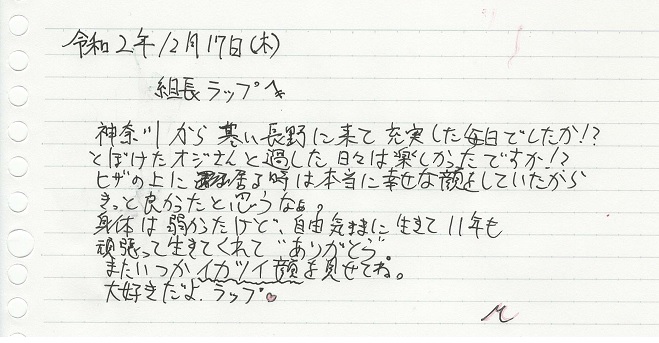 令和2年12月17日(木)
組長ラップへ
神奈川から寒い長野に来て充実した毎日でしたか!?
とぼけたオジさんと過した日々は楽しかったですか!?
ヒザの上に居る時は本当に幸せな顔をしていたから
きっと良かったと思うなぁ。
身体は弱かったけど、自由気ままに生きて11年も
頑張って生きてくれて"ありがとう"。
またいつかイカツイ顔を見せてね。
大好きだよ.ラップ♥